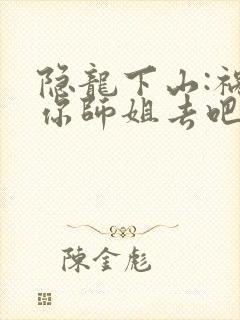 隐龍下山:禍
你師姐去吧
陳金彪